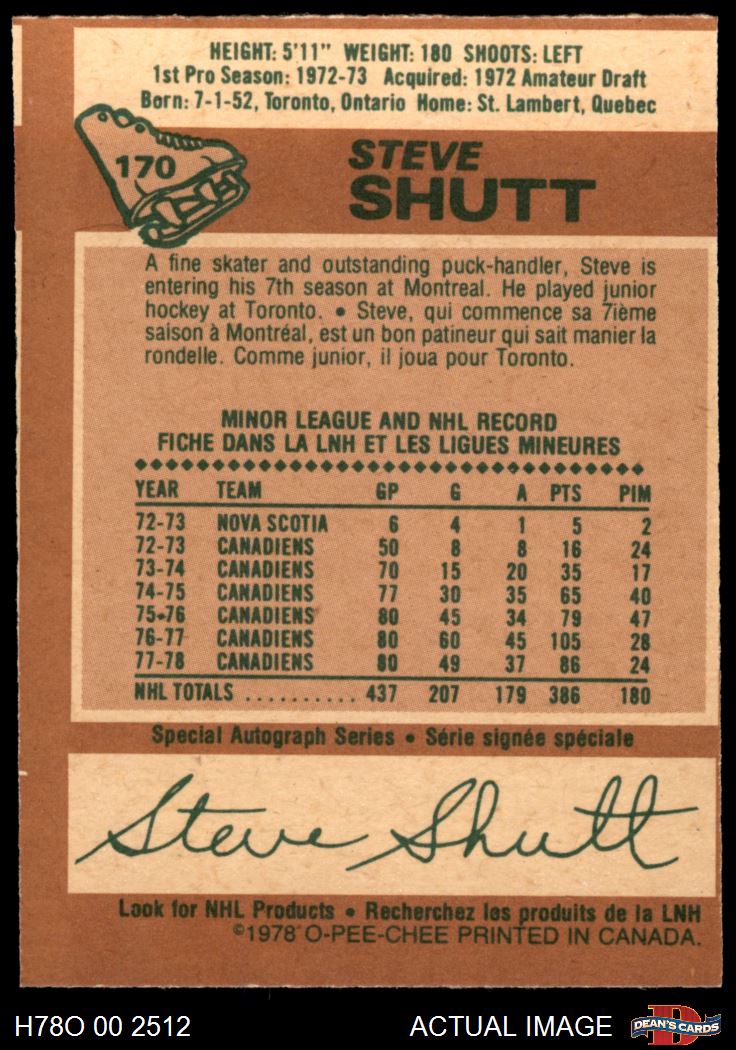 HEIGHT: 5'11" WEIGHT: 180 SHOOTS: LEFT
1st Pro Season: 1972-73 Acquired: 1972 Amateur Draft
Born: 7-1-52, Toronto, Ontario Home: St. Lambert, Quebec
170
STEVE
SHUTT
A fine skater and outstanding puck-handler, Steve is
entering his 7th season at Montreal. He played junior
hockey at Toronto. • Steve, qui commence sa 7ième
saison à Montréal, est un bon patineur qui sait manier la
rondelle. Comme junior, il joua pour Toronto.
MINOR LEAGUE AND NHL RECORD
FICHE DANS LA LNH ET LES LIGUES MINEURES
YEAR TEAM GP G A PTS PIM
72-73 NOVA SCOTIA 6 4 1 5 2
72-73 CANADIENS 50 8 8 16 24
73-74 CANADIENS 70 15 20 35 17
74-75 CANADIENS 77 30 35 65 40
75-76 CANADIENS 80 45 34 79 47
76-77 CANADIENS 80 60 45 105 28
77-78 CANADIENS 80 49 37 86 24
NHL TOTALS .......... 437 207 179 386 180
Special Autograph Series • Série signée spéciale
Steve Shutt
Look for NHL Products • Recherchez les produits de la LNH
©1978 O-PEE-CHEE PRINTED IN CANADA.
H78O 00 2512 ACTUAL IMAGE DEAN'S CARDS